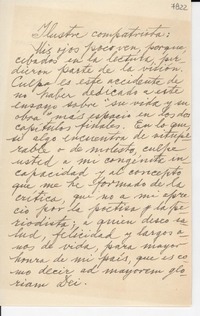 7822
Ilustre compatriota:
Mis ojos poco ven, porque,
cebados en la lectura, per-
dieron parte de la visión.
Culpa es este accidente de
no haber dedicado a este
ensayo sobre "su vida y su
obra" más espacio en los dos
capítulos finales. En lo que
se algo encuentra de vitupe-
rable o de molesto, culpe
usted a mi congénita in-
capacidad y al concepto
que me he formado de la
crítica, que no a mi apre-
cio por la poetisa y la pe-
riodista; a quien deseo sa-
lud, felicidad y largos a-
ños de vida, para mayor
honra de mi país, que es co-
mo decir ad majorem glo-
riam Dei.